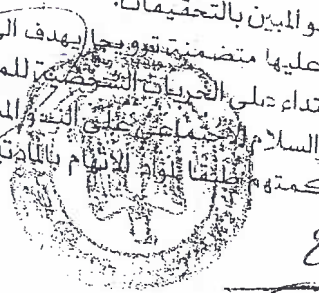 و المبين بالتحقيقات.
عليها متضمنة ترويجا يهدف ال
تداء على الحريات الشخصية للم
والسلام الاجتماعي على النحو الم
كمتهم طبقا لمواد الاتهام بالمادتا